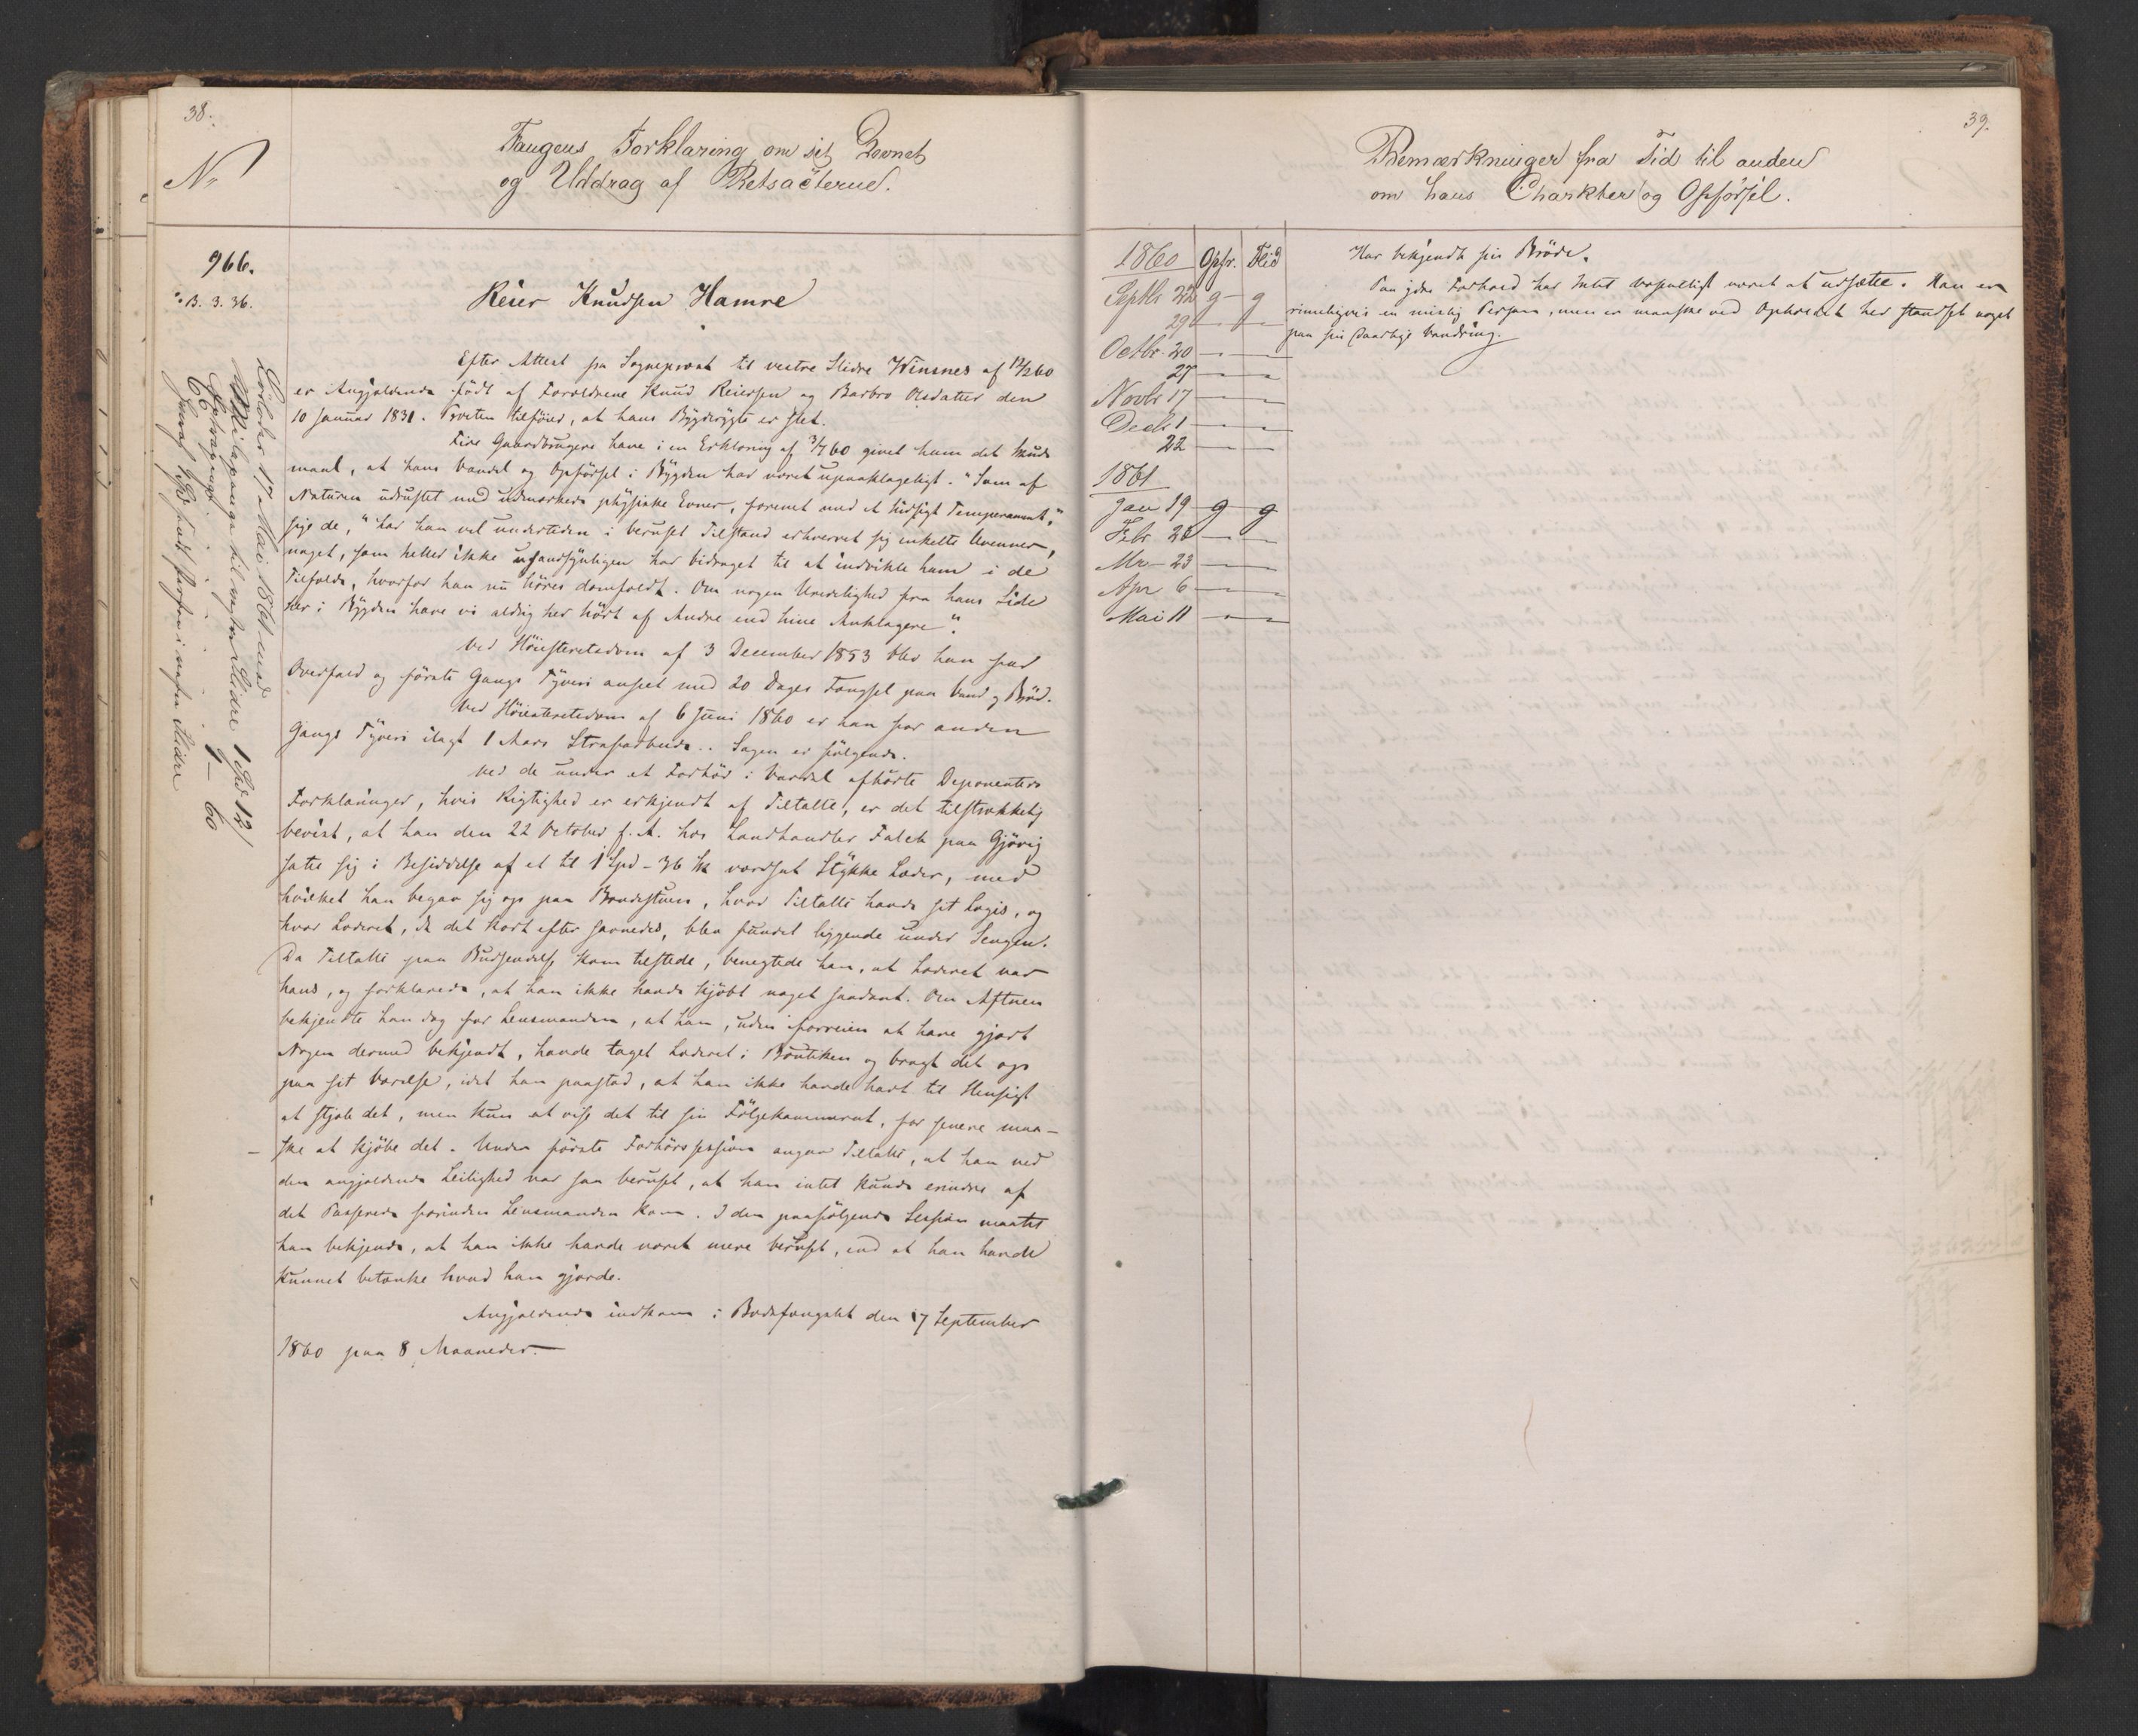 38.
Nr
Fangens Forklaring om sit Levnet
og Uddrag af Retsacterne.
966.
B. 3. 36.
Reier Knudsen Hamre
Efter Attest fra Sogneprest til vestre Slidre Winsnes af 12/2 60
er Angjældende født af Forældrene Knud Reiersen og Barbro Olsdatter den
10 Januar 1831. Presten tilføier, at hans Bygderygte er slet.
Fire Gaardbrugere have i en Erklæring af 3/7 60 givet ham det Skuds-
maal, at hans Vandel og Opførsel i Bygden har været upaaklageligt. "Som af
Naturen udrustet med udmærkede physiske Evner, forenet med et hidsigt Temperament,"
sige de, "har han vel undertiden i beruset Tilstand erhvervet sig enkelte Uvenner,
noget, som heller ikke usandsynligen har bidraget til at indvikle ham i de
Tilfælde, hvorfor han nu høres domfældt. Om nogen Uredelighed fra hans Side
her i Bygden have vi aldrig her hørt af Andre end hine Anklagere".
Ved Høiesteretsdom af 3 December 1853 blev han for
Overfald og første Gangs Tyveri anseet med 20 Dages Fængsel paa Vand og Brød.
Ved Høiesteretsdom af 6 Juni 1860 er han for anden
Gangs Tyveri ilagt 1 Aars Strafarbeide.. Sagen er følgende.
Ved de under et Forhør i Vardal afhørte Deponenters
Forklaringer, hvis Rigtighed er erkjendt af Tiltalte, er det tilstrækkelig
bevist, at han den 22 October f. A. hos Landhandler Falck paa Gjøvig
satte sig i Besiddelse af et til 1 Spd - 36 sk værdsat Stykke Læder, med
hvilket han begav sig op paa Bondestuen, hvor Tiltalte havde sit Logis, og
hvor Læderet, da det kort efter savnedes, blev fundet liggende under Sengen.
Da Tiltalte paa Budsendelse kom tilstede, benegtede han, at Læderet var
hans, og forklarede, at han ikke havde kjøbt noget saadant. Om Aftenen
bekjendte han dog for Lensmanden, at han, uden forveien at have gjort
Nogen dermed bekjendt, havde taget Læderet i Boutiken og bragt det op
paa sit Værelse, idet han paastod, at han ikke havde havt til Hensigt
at stjæle det, men kun at vise det til sin Følgekammerat, for senere maa-
ske at kjøbe det. Under første Forhørssession angav Tiltalte, at han ved
den angjældende Leilighed var saa beruset, at han intet kunde erindre af
det Passerede førinden Lensmanden kom. I den paafølgende Session maatte
han bekjende, at han ikke havde været mere beruset, end at han havde
kunnet betænke hvad han gjorde.
Angjældende indkom i Bodsfængslet den 17 September
1860 paa 8 Maaneder.
Løslades 17 Mai 1861 med
til vestre Slidre 1 Spd 12
9 - 60
vestre Slidre
39.
Bemærkninger fra Tid til anden
om hans Charkter og Opførsel.
1860 Opf. Flid
Septbr 22 g g
29 - -
Octbr. 20 - -
27 - -
Novbr 17 - -
Decbr 1 - -
22 - -
1861
Jan 19 g g
Febr 23 - -
Mr 23 - -
Apr 6 - -
Mai 11 - -
Har bekjendt sin Brøde.
Paa hans Forhold har Intet væsentligt været at udsætte. Han er
rimeligvis en mislig Person, men er maaske ved Opholdet her standset noget
paa sin daarlige Vandring.